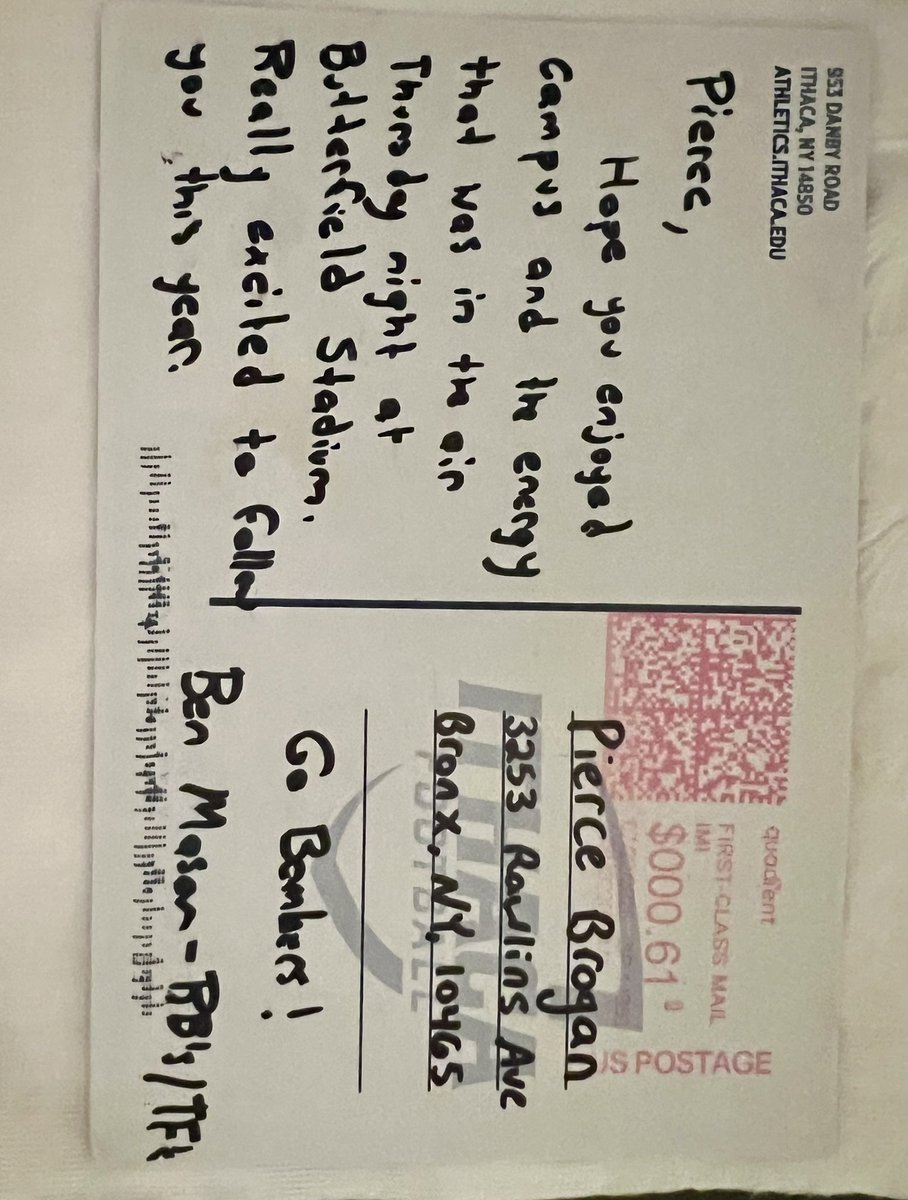 953 DANBY ROAD
ITHACA, NY 14850
ATHLETICS.ITHACA.EDU
Pierce,
Hope you enjoyed
Campus and the energy
that was in the air
Thursdy night at
Butterfield Stadium.
Really excited to follow
you this year.
quadient
FIRST-CLASS MAIL
IMI
$000.61 0
US POSTAGE
ITHACA
FOOTBALL
Pierce Brogan
3253 Rawlins Ave
Bronx, NY, 10465
Go Bombers!
Ben Mason - RB's/TE's